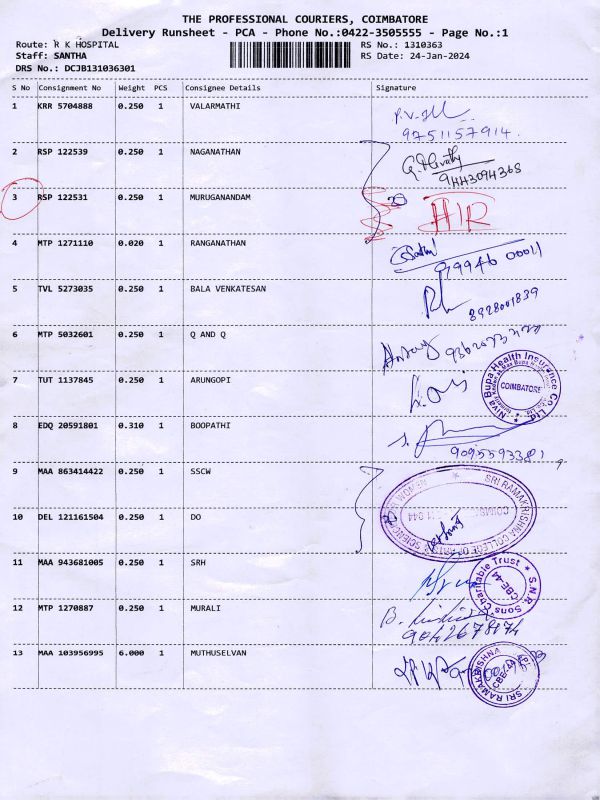 THE PROFESSIONAL COURIERS, COIMBATORE
Delivery Runsheet - PCA - Phone No.:0422-3505555 - Page No.:1
Route: R K HOSPITAL RS No.: 1310363
Staff: SANTHA RS Date: 24-Jan-2024
DRS No.: DCJB131036301
S No Consignment No Weight PCS Consignee Details Signature
1 KRR 5704888 0.250 1 VALARMATHI
9751157914.
2 RSP 122539 0.250 1 NAGANATHAN
3 RSP 122531 0.250 1 MURUGANANDAM
4 MTP 1271110 0.020 1 RANGANATHAN
99946 00011
5 TVL 5273035 0.250 1 BALA VENKATESAN
8928001839
6 MTP 5032601 0.250 1 Q AND Q
7 TUT 1137845 0.250 1 ARUNGOPI
Niva Bupa Health Insurance Co Ltd
COIMBATORE
8 EDQ 20591801 0.310 1 BOOPATHI
9095593381
9 MAA 863414422 0.250 1 SSCW
SRI RAMAKRISHNA COLLEGE OF ARTS & SCIENCE FOR WOMEN
10 DEL 121161504 0.250 1 DO
11 MAA 943681005 0.250 1 SRH
S.N.R Sons Charitable Trust
CBE-44
12 MTP 1270887 0.250 1 MURALI
9042678174
13 MAA 103956995 6.000 1 MUTHUSELVAN
SRI RAMAKRISHNA
CBE-44